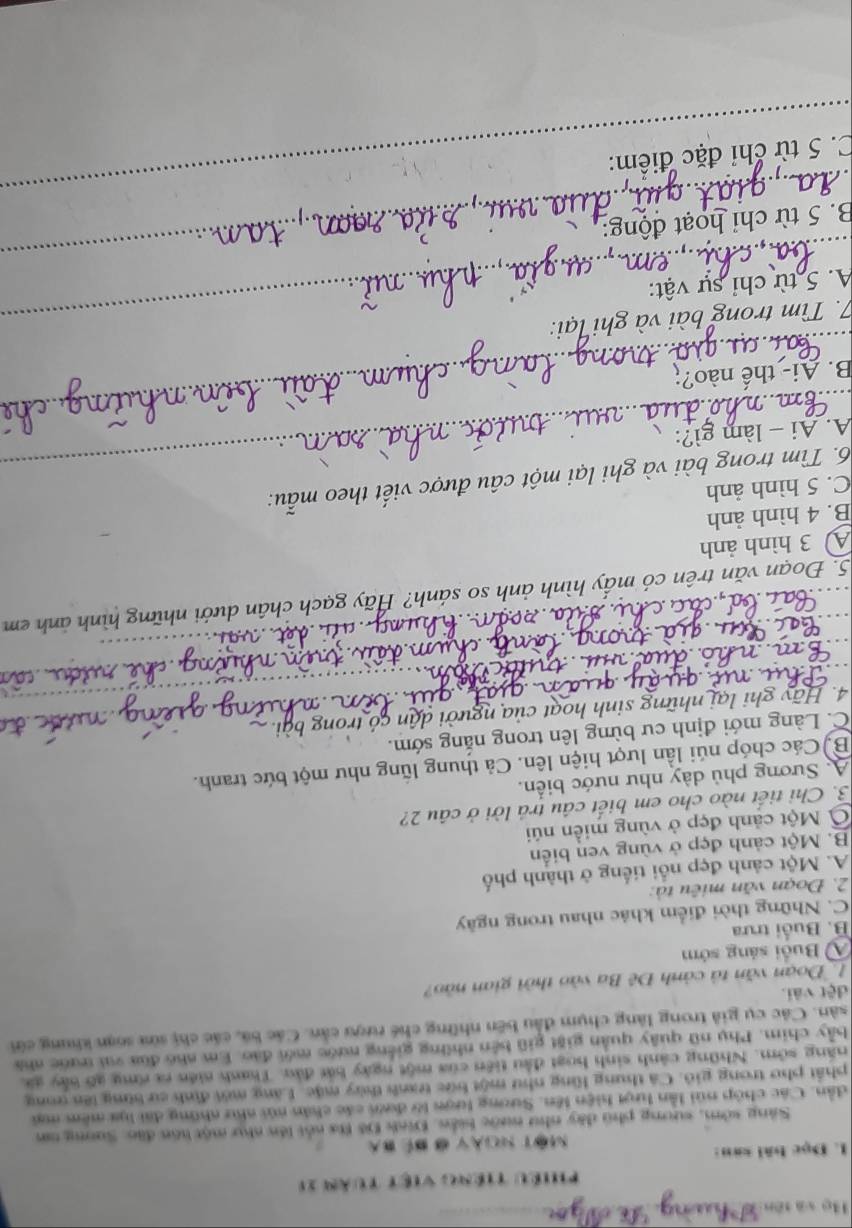 Họ và tên:
PHIẾU TIẾNG VIỆT TUẦN 21
I. Đọc bài sau:
MỘT NGÀY Ở ĐÊ BA
Sáng sớm, sương phủ dày như nước biển. Đỉnh Đê Ba nổi lên như một hòn đảo. Sương tan
dần. Các chóp núi lần lượt hiện lên. Sương lượn lờ dưới các chân núi như những dải lụa mềm mại
phất phơ trong gió. Cả thung lũng như một bức tranh thủy mặc. Làng mới định cư bừng lên trong
nắng sớm. Những cảnh sinh hoạt đầu tiên của một ngày bắt đầu. Thanh niên ra rừng gỡ bẫy gà,
bẫy chim. Phụ nữ quây quần giặt giũ bên những giếng nước mới đào. Em nhỏ đùa vui trước nhà
sàn. Các cụ già trong làng chụm đầu bên những ché rượu cần. Các bà, các chị sửa soạn khung cửi
dệt vải.
1. Đoạn văn tả cảnh Đê Ba vào thời gian nào?
A Buổi sáng sớm
B. Buổi trưa
C. Những thời điểm khác nhau trong ngày
2. Đoạn văn miêu tả:
A. Một cảnh đẹp nổi tiếng ở thành phố
B. Một cảnh đẹp ở vùng ven biển
C Một cảnh đẹp ở vùng miền núi
3. Chi tiết nào cho em biết câu trả lời ở câu 2?
A. Sương phủ dày như nước biển.
B. Các chóp núi lần lượt hiện lên. Cả thung lũng như một bức tranh.
C. Làng mới định cư bừng lên trong nắng sớm.
4. Hãy ghi lại những sinh hoạt của người dân có trong bài.
Phụ nữ quây quần giặt giũ bên những giếng nước
Em nhỏ đùa vui trước nhà sàn.
Các cụ già trong làng chụm đầu trên những ché rượu cần
Các bà, các chị sửa soạn khung cửi dệt vải
5. Đoạn văn trên có mấy hình ảnh so sánh? Hãy gạch chân dưới những hình ảnh em
A 3 hình ảnh
B. 4 hình ảnh
C. 5 hình ảnh
6. Tìm trong bài và ghi lại một câu được viết theo mẫu:
A. Ai – làm gì?:
Em nhỏ đùa vui trước nhà sàn
B. Ai- thế nào?:
Các cụ già trong làng chụm đầu bên những ché
7. Tìm trong bài và ghi lại:
A. 5 từ chỉ sự vật:
bà, chị, em, cụ già, phụ nữ
B. 5 từ chỉ hoạt động:
ra, giặt giũ, đùa vui, sửa soạn, tan
C. 5 từ chỉ đặc điểm: